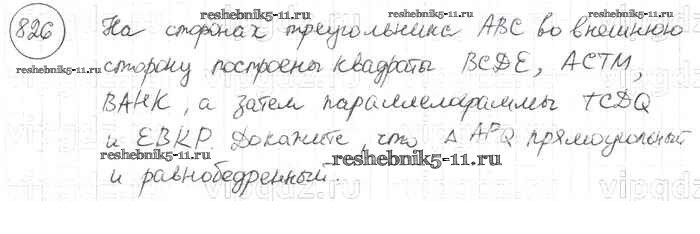 reshebnik5-11.ru reshebnik5-11.ru
826 На сторонах треугольника ABC во внешнюю
сторону построены квадраты BCDE, ACTM,
BAHK, а затем параллелограммы TCDQ
и EBKP. Докажите, что △ APQ прямоугольный
reshebnik5-11.ru reshebnik5-11.ru
reshebnik5-11.ru
и равнобедренный.